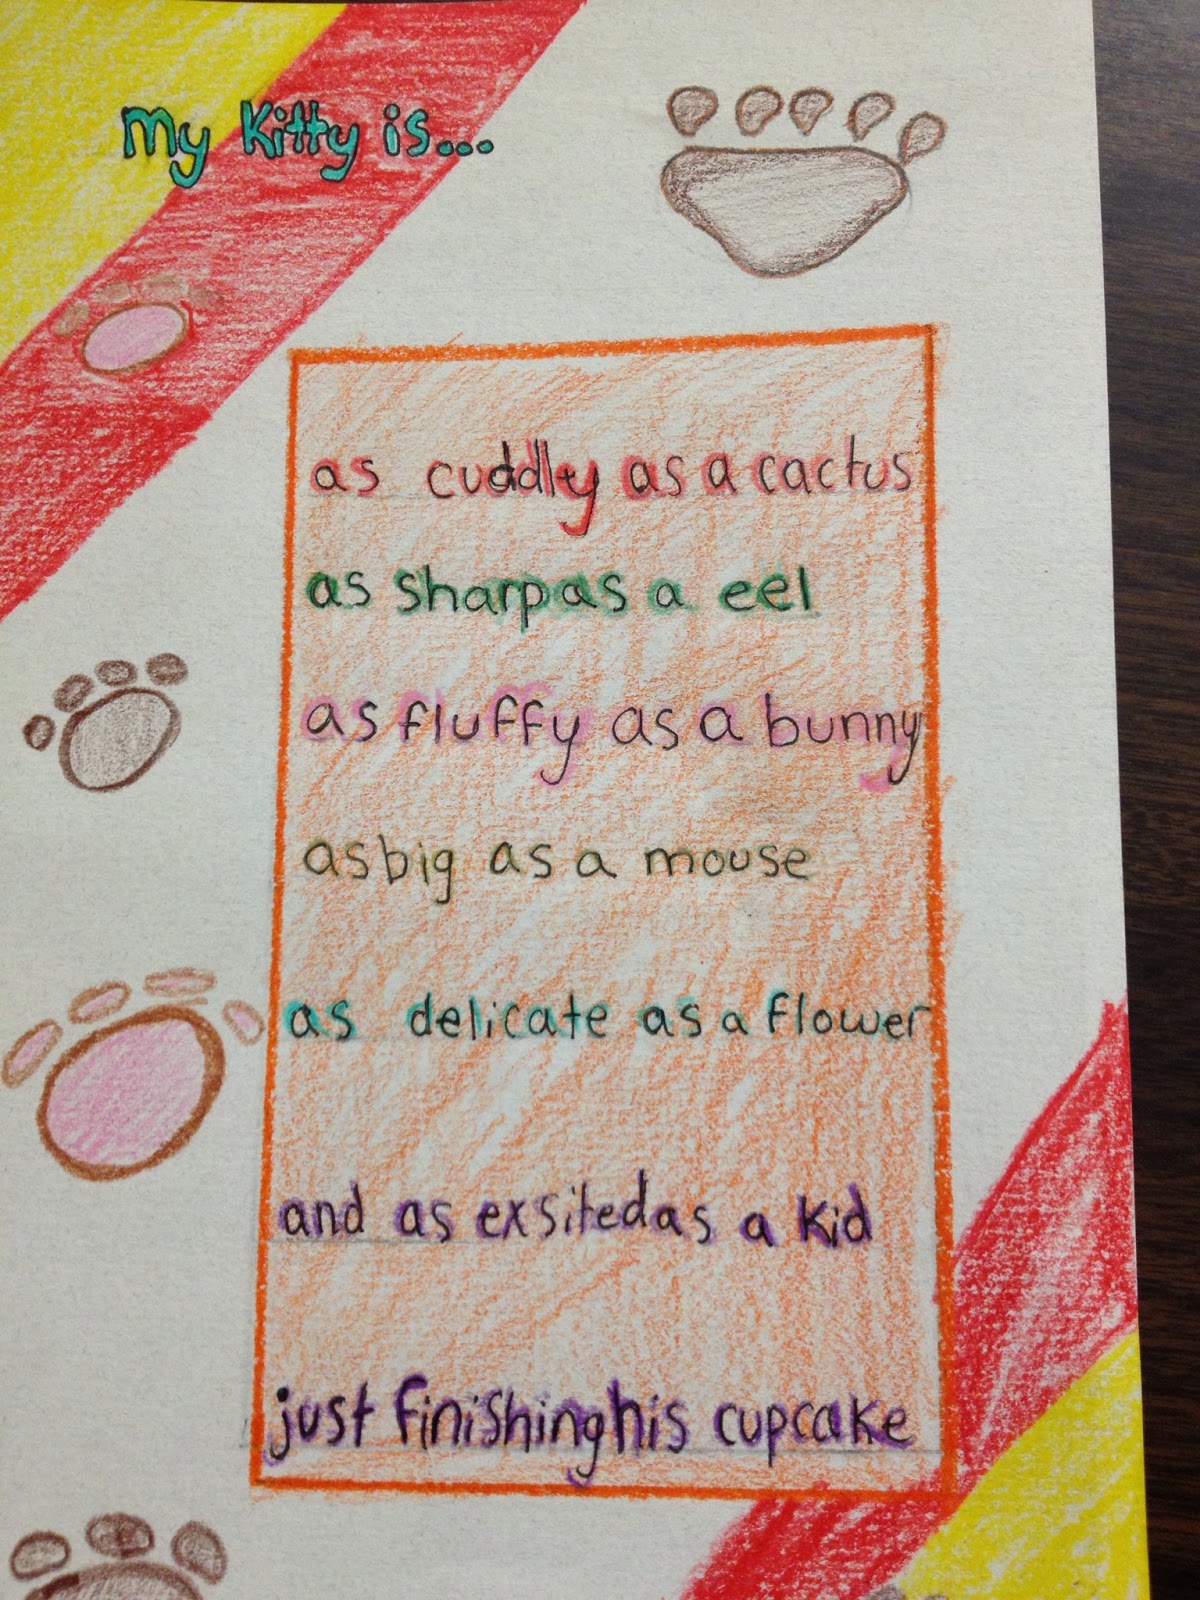 My Kitty is...
as cuddly as a cactus
as sharp as a eel
as fluffy as a bunny
as big as a mouse
as delicate as a flower
and as exsited as a kid
just finishing his cupcake